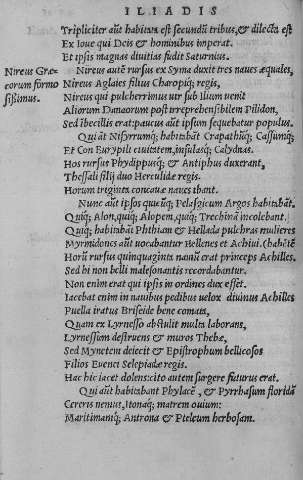 ILIADIS
Tripliciter aũt habitatũ est secundũ tribus, & dilecti est
Ex Ioue qui Deis & hominibus imperat.
Et ipsis magnas diuitias fudit Saturnius.
Nireus Græ
corum formo
sissimus.
Nireus autẽ rursus ex Syma duxit tres naues æquales,
Nireus Aglaies filius Charopiq́; regis,
Nireus qui pulcherrimus uir sub Ilium uenit
Aliorum Danaorum post irreprehensibilem Pilidon,
Sed ĩbecillis erat: paucus aũt ipsum sequebatur populus.
Qui aũt Nisyrrumq́; habitabãt Crapathũq́; Cassumq́;
Et Con Eurypili ciuitatem, insulasq́; Calydnas.
Hos rursus Phydippusq́; & Antiphus duxerant,
Thessali filij duo Herculidæ regis.
Horum triginta concauæ naues ibant.
Nunc aũt ipsos quicũq; Pelasgicum Argos habitabãt.
Quiq́; Alon, quiq́; Alopen, quiq́; Trechinã incolebant.
Quiq́; habitabãt Phthiam & Hellada pulchras mulieres
Myrmidones aũt uocabantur Hellenes et Achiui.
Horũ rursus quinquaginta nauiũ erat princeps Achilles.
Sed hi non belli malesonantis recordabantur.
Non enim erat qui ipsis in ordines dux esset.
Iacebat enim in nauibus pedibus uelox diuinus Achilles
Puella iratus Briseide bene comata,
Quam ex Lyrnesso abstulit multa laborans,
Lyrnessum destruens & muros Thebæ,
Sed Mynetem deiecit & Epistrophum bellicosos
Filios Eueni Selepiadæ regis.
Hac hic iacet dolens: cito autem surgere futurus erat.
Qui aũt habitabant Phylacẽ, & Pyrrhasum floridã
Cereris nemus, Itonaq́; matrem ouium:
Maritimamq́; Antrona & Pteleum herbosam.